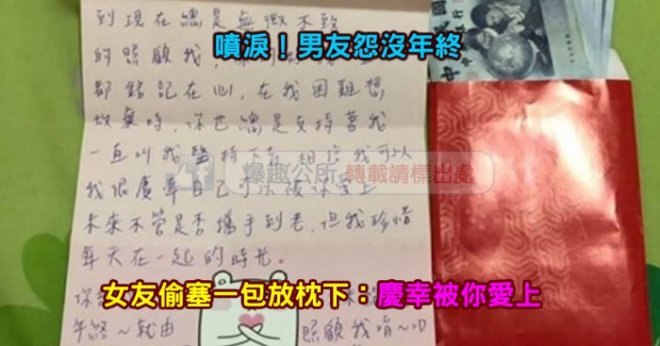 到現在總是無微不致
的照顧我，
噴淚！男友怨沒年終
都銘記在心，在我困難想
放棄時，你也總是支持著我
一直叫我堅持下去 相信我可以
爆趣公所 轉載請標出處
我很慶幸自己可以被你愛上
未來不管是否攜手到老，但我珍惜
每天在一起的時光。
女友偷塞一包放枕下：慶幸被你愛上
年終～就由
照顧我唷～